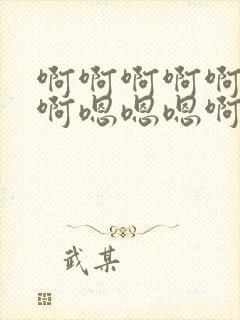 啊啊啊啊啊
啊嗯嗯嗯啊
武某